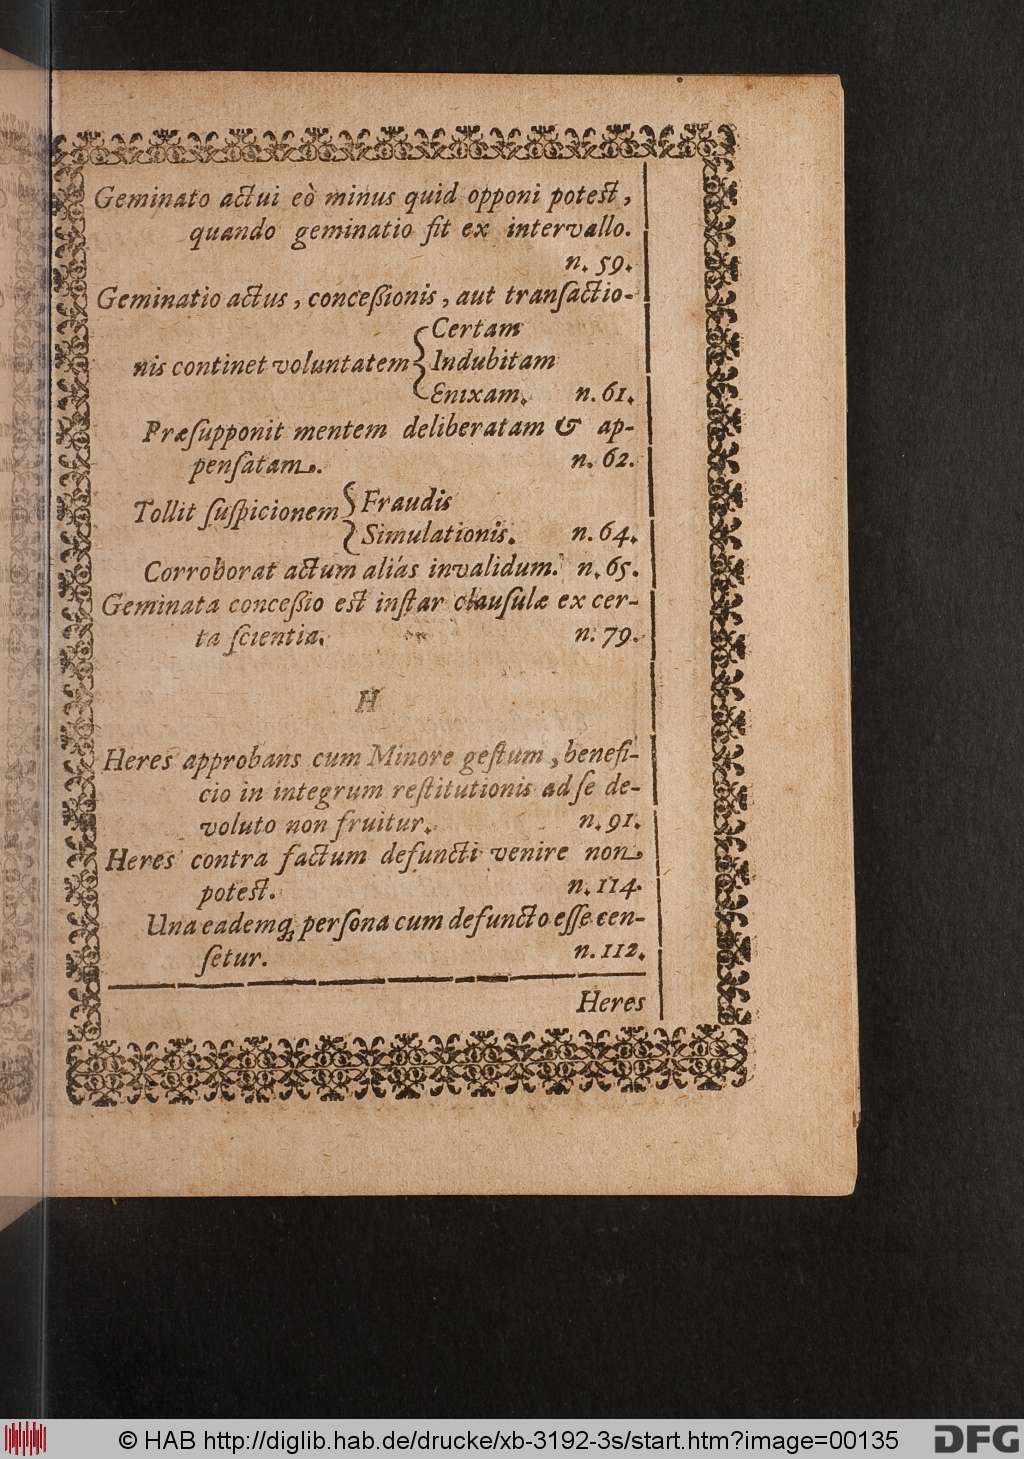 Geminato actui eò minus quid opponi potest,
quando geminatio fit ex intervallo.
n. 59.
Geminatio actus, conceßionis, aut transactio-
Certam
nis continet voluntatem { Indubitam
Enixam. n. 61.
Præsupponit mentem deliberatam & ap-
pensatam. n. 62.
Tollit suspicionem { Fraudis
Simulationis. n. 64.
Corroborat actum aliás invalidum. n. 65.
Geminata conceßio est instar clausulæ ex cer-
ta scientia. n. 79.
H
Heres approbans cum Minore gestum, benefi-
cio in integrum restitutionis ad se de-
voluto non fruitur. n. 91.
Heres contra factum defuncti venire non
potest. n. 114.
Una eademq; persona cum defuncto esse cen-
setur. n. 112.
Heres
© HAB http://diglib.hab.de/drucke/xb-3192-3s/start.htm?image=00135
DFG